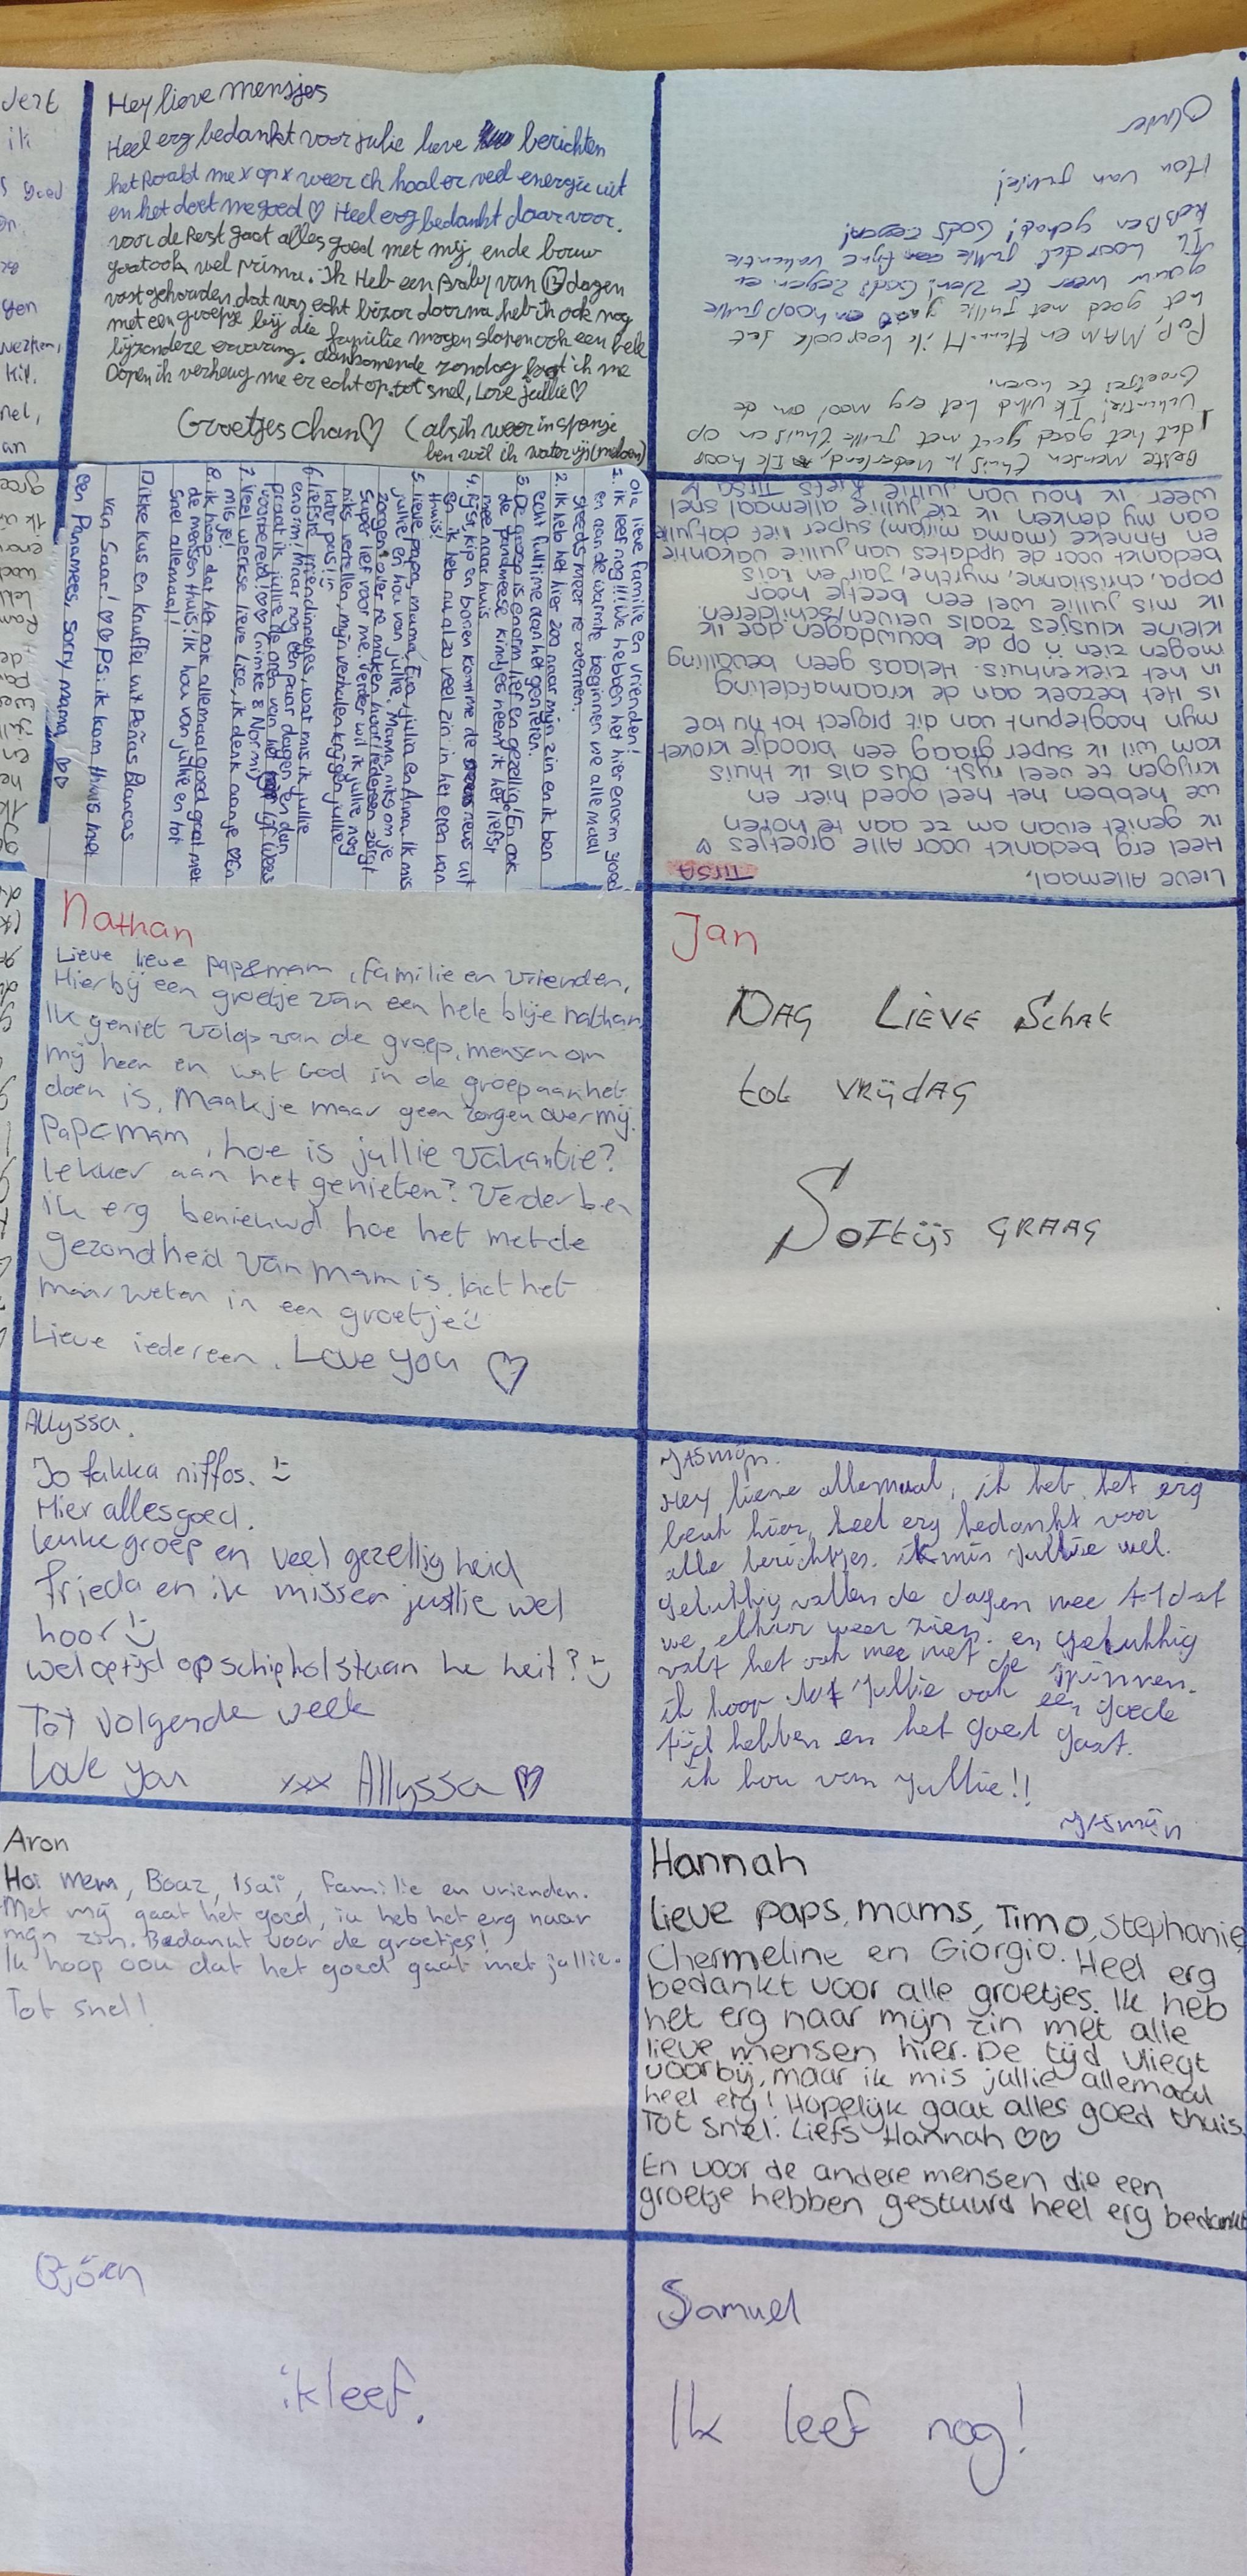 Hey lieve mensjes
Heel erg bedankt voor julie lieve berichten
het Raakt me x op x weer ich haal er veel energie uit
en het doet me goed ♡ Heel erg bedankt daar voor.
voor de Rest gaat alles goed met mij, en de bouw
gaat ook wel prima. ik Heb een Baby van dagen
vast gehouden dat was echt bizar daarna heb ik ook nog
met een groepje bij die familie mogen slapen ook een hele
bijzondere ervaring. aankomende zondag laat ik me
Dopen ik verheug me er echt op. tot snel, Love jullie ♡
Groetjes chan ♡ (als ik weer in spanje
ben wil ik water ijs(meloen)
Beste mensen thuis in Nederland, Ik hoop
dat het goed gaat met jullie thuis en op
vakantie! Ik vind het erg mooi om de
Groetjes te horen.
PaP, MAM en ik hoop ook dat
het goed met jullie gaat en hoop jullie
gauw weer te zien! Gods zegen en
Ik hoop dat jullie een fijne vakantie
hebben gehad! Gods zegen!
Hou van jullie!
Olivier
Ola lieve familie en vrienden!
1. ik leef nog!!! We hebben het hier enorm goed
en aan de warmte beginnen we allemaal
steeds meer te wennen.
2. Ik heb het hier zoo naar mijn zin en ik ben
echt fulltime aan het genieten.
3. De groep is enorm lief en gezellig! En ook
de panamese kindjes neem ik het liefst
mee naar huis.
4. Rijst, kip en bonen komt me de neus uit
en ik heb nu al zo veel zin in het eten van
thuis!
5. lieve papa, mama, Eva, julia en Anna. Ik mis
jullie en hou van jullie. Mama, niks om je
zorgen over te maken hoor! iedereen zorgt
super lief voor me. Verder wil ik jullie nog
niks vertellen, mijn verhalen krijgen jullie
later pas! ;)
6. Liefste vriendinnetjes, wat mis ik jullie
enorm! Maar nog een paar dagen en dan
praat ik jullie de oren van het lijf. Wees
voorbereid! ♡♡ (nimke & Normi)
7. Veel werkse lieve Lise, ik denk aan je ♡ en
mis je!
8. ik hoop dat het ook allemaal goed gaat met
de mensen thuis! ik hou van jullie en tot
snel allemaal!
Dikke kus en knuffel uit Peñas Blancas
van Saar! ♡♡ Ps: ik kom thuis met
een Panamees, sorry mama ♡♡
Lieve Allemaal, TIRSA
Heel erg bedankt voor alle groetjes ♡
ik geniet ervan om ze aan te horen
we hebben het heel goed hier en
krijgen te veel rijst. dus als ik thuis
kom wil ik super graag een broodje kroket
mijn hoogtepunt van dit project tot nu toe
is Het bezoek aan de kraamafdeling
in het ziekenhuis. Helaas geen bevalling
mogen zien ü op de bouwdagen doe ik
kleine klusjes zoals verven/schilderen.
ik mis jullie wel een beetje hoor
papa, christianne, myrthe, Jair en Loïs
bedankt voor de updates van jullie vakantie
en Anneke (mama mirjam) super lief dat jullie
aan my denken ik zie jullie allemaal snel
weer ik hou van jullie liefs TIRSA
Nathan
Lieve lieve pap&mam, familie en vrienden,
Hierbij een groetje van een hele blije nathan
Ik geniet volop van de groep, mensen om
mij heen en wat God in de groep aan het
doen is. Maak je maar geen zorgen over mij.
Pap&mam, hoe is jullie vakantie?
lekker aan het genieten? Verder ben
ik erg benieuwd hoe het met de
gezondheid van mam is. laat het
maar weten in een groetje ü
Lieve iedereen. Love you ♡
Jan
DAG LIEVE SCHAt
tot VRijdAG
SoFtijs GRAAG
Allyssa.
Jo fakka niffos. :)
Hier alles goed.
leuke groep en veel gezelligheid
frieda en ik missen jullie wel
hoor :)
wel op tijd op schiphol staan he heit? :)
Tot volgende week
Love you xxx Allyssa ♡
JASmijn.
Hey lieve allemaal, ik heb het erg
leuk hier, heel erg bedankt voor
alle berichtjes. ik mis jullie wel.
gelukkig vallen de dagen mee tot dat
we elkaar weer zien. en gelukkig
valt het ook mee met de spinnen.
ik hoop dat jullie ook een goede
tijd hebben en het goed gaat.
ik hou van jullie!!
JASmijn
Aron
Hoi mem, Boaz, Isaï, familie en vrienden.
Met mij gaat het goed, ik heb het erg naar
mijn zin. Bedankt voor de groetjes!
Ik hoop ook dat het goed gaat met jullie.
Tot snel!
Hannah
Lieve paps, mams, Timo, Stephanie,
Chermeline en Giorgio. Heel erg
bedankt voor alle groetjes. Ik heb
het erg naar mijn zin met alle
lieve mensen hier. De tijd vliegt
voorbij, maar ik mis jullie allemaal
heel erg! Hopelijk gaat alles goed thuis.
Tot snel! Liefs Hannah ♡♡
En voor de andere mensen die een
groetje hebben gestuurd heel erg bedankt
Björn
ik leef.
Samuel
Ik leef nog!